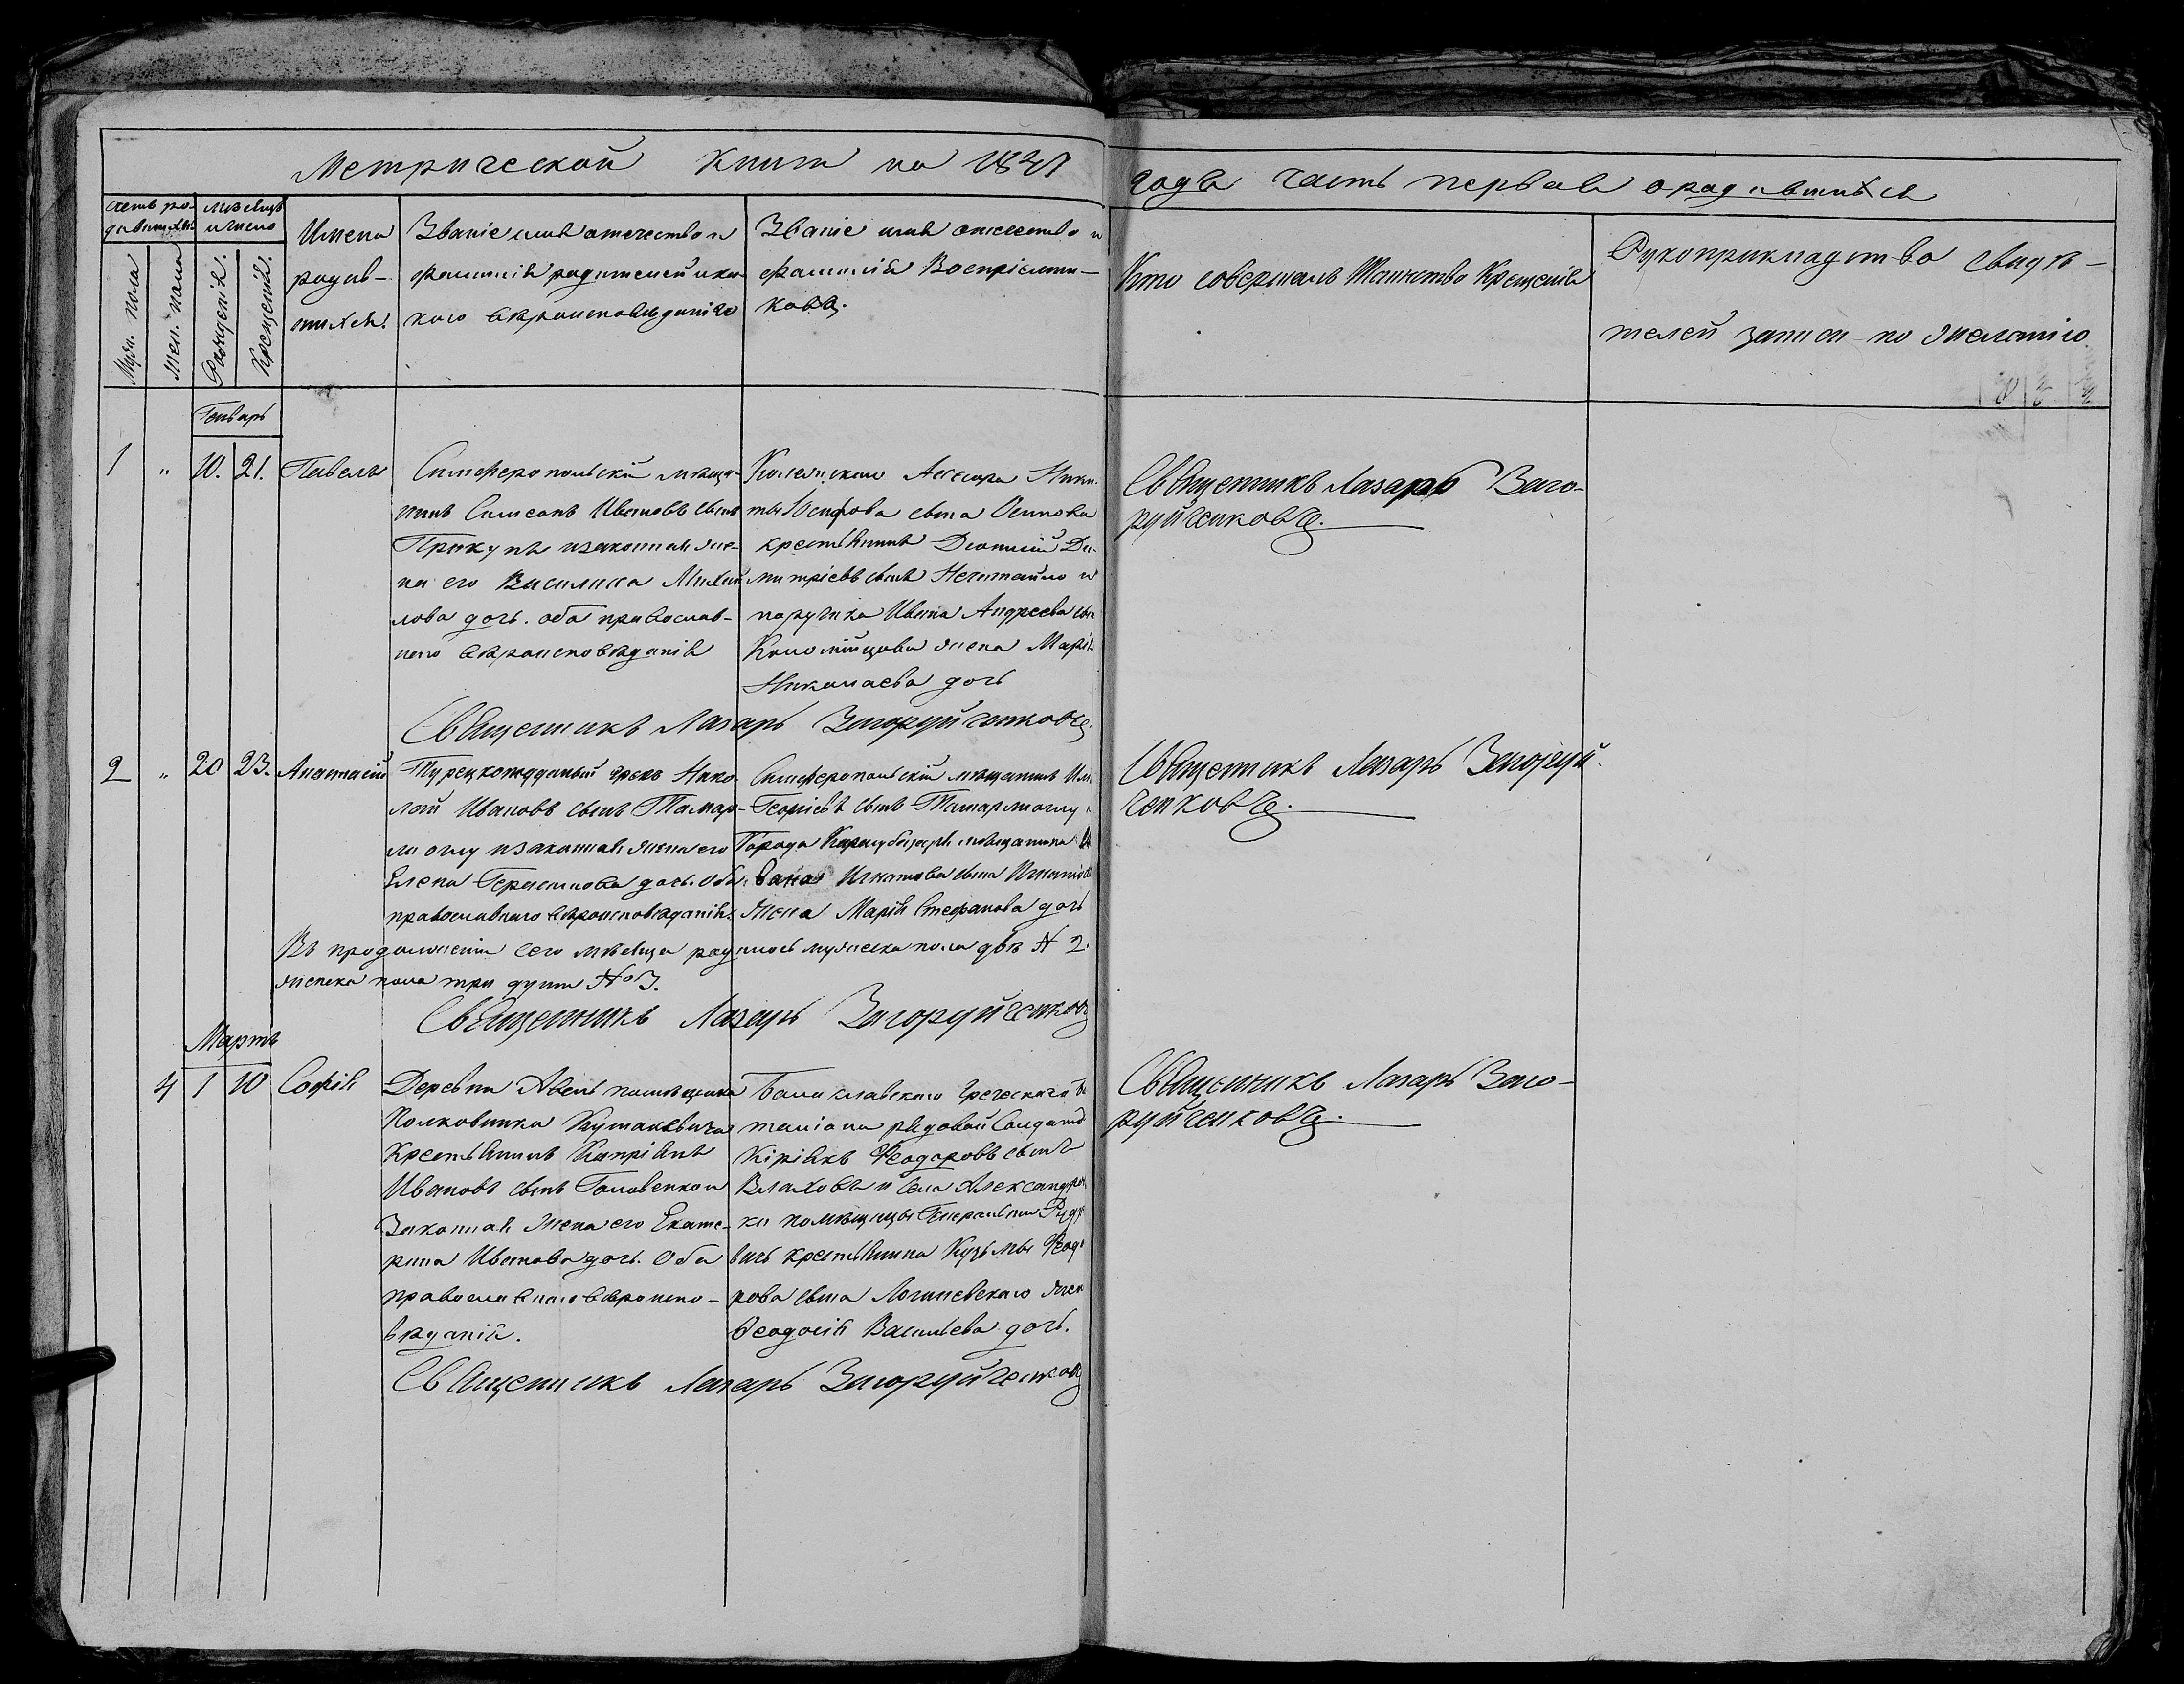 Метрической Книги на 1841 года часть первая о родившихся
Счетъ ро-
дившихся.
Мѣсяцъ
и число
Муж. пола
Жен. пола
Рожденія.
Крещенія.
Имена
родив-
шихся.
Званіе имя отечество и
фамилія родителей и ка-
кого вѣроисповѣданія
Званіе имя отечество и
фамилія Воспріемни-
ковъ.
Кто совершалъ Таинство Крещенія
Рукоприкладство свидѣ-
телей записи по желанію
Генварь
1 " 10. 21. Павелъ
Симферопольскій мѣща-
нинъ Симеонъ Ивановъ сынъ
Прокупъ и законная же-
на его Василиса Михай
лова дочь. оба православ-
наго вѣроисповѣданія
Колежскаго Ассесора Ники-
ты сына Осипова
крестьянинъ Дионисій Ди-
митріевъ сынъ Нечитайло и
поручика Ивана Андреева сы
Коломійцова жена Марія
Николаева дочь
Священникъ Лазарь Загоруйченковъ.
Священникъ Лазарь Заго-
руйченковъ.
2 " 20 23. Анастасій
Турецкоподданый грекъ Нико-
лай Ивановъ сынъ Тамар-
ли оглу и законная жена его
Елена Герасимова дочь. Оба
православнаго вѣроисповѣданія.
Симферопольскій мѣщанинъ
Георгіевъ сынъ
Города Карасубазаря мѣщанина
вана Игнатова сына
жена Марія Стефанова дочь
Священникъ Лазарь Загоруй-
ченковъ.
Въ продолженіи сего мѣсяца родилось мужеска пола двѣ № 2.
женска пола три души № 3.
Священникъ Лазарь Загоруйченковъ
Мартъ
4 1 10 Софія
Деревни Авель помѣщика
Полковника
Крестьянинъ Кипріянъ
Ивановъ сынъ Головенко и
Законная Жена его Екате-
рина Иванова дочь. Оба
православнаго вѣроиспо-
вѣданія.
Балаклавскаго Греческаго Ба
таліона рядовой Солдатъ
Кіріякъ Ѳеодоровъ сынъ
Влаховъ и села Александров
ки помѣщицы Генеральши
вичъ крестьянина Кузьмы Ѳеодо
рова сына Логиневскаго Жен
Ѳеодосія Васильева дочь.
Священникъ Лазарь Загоруйченковъ
Священникъ Лазарь Заго-
руйченковъ.